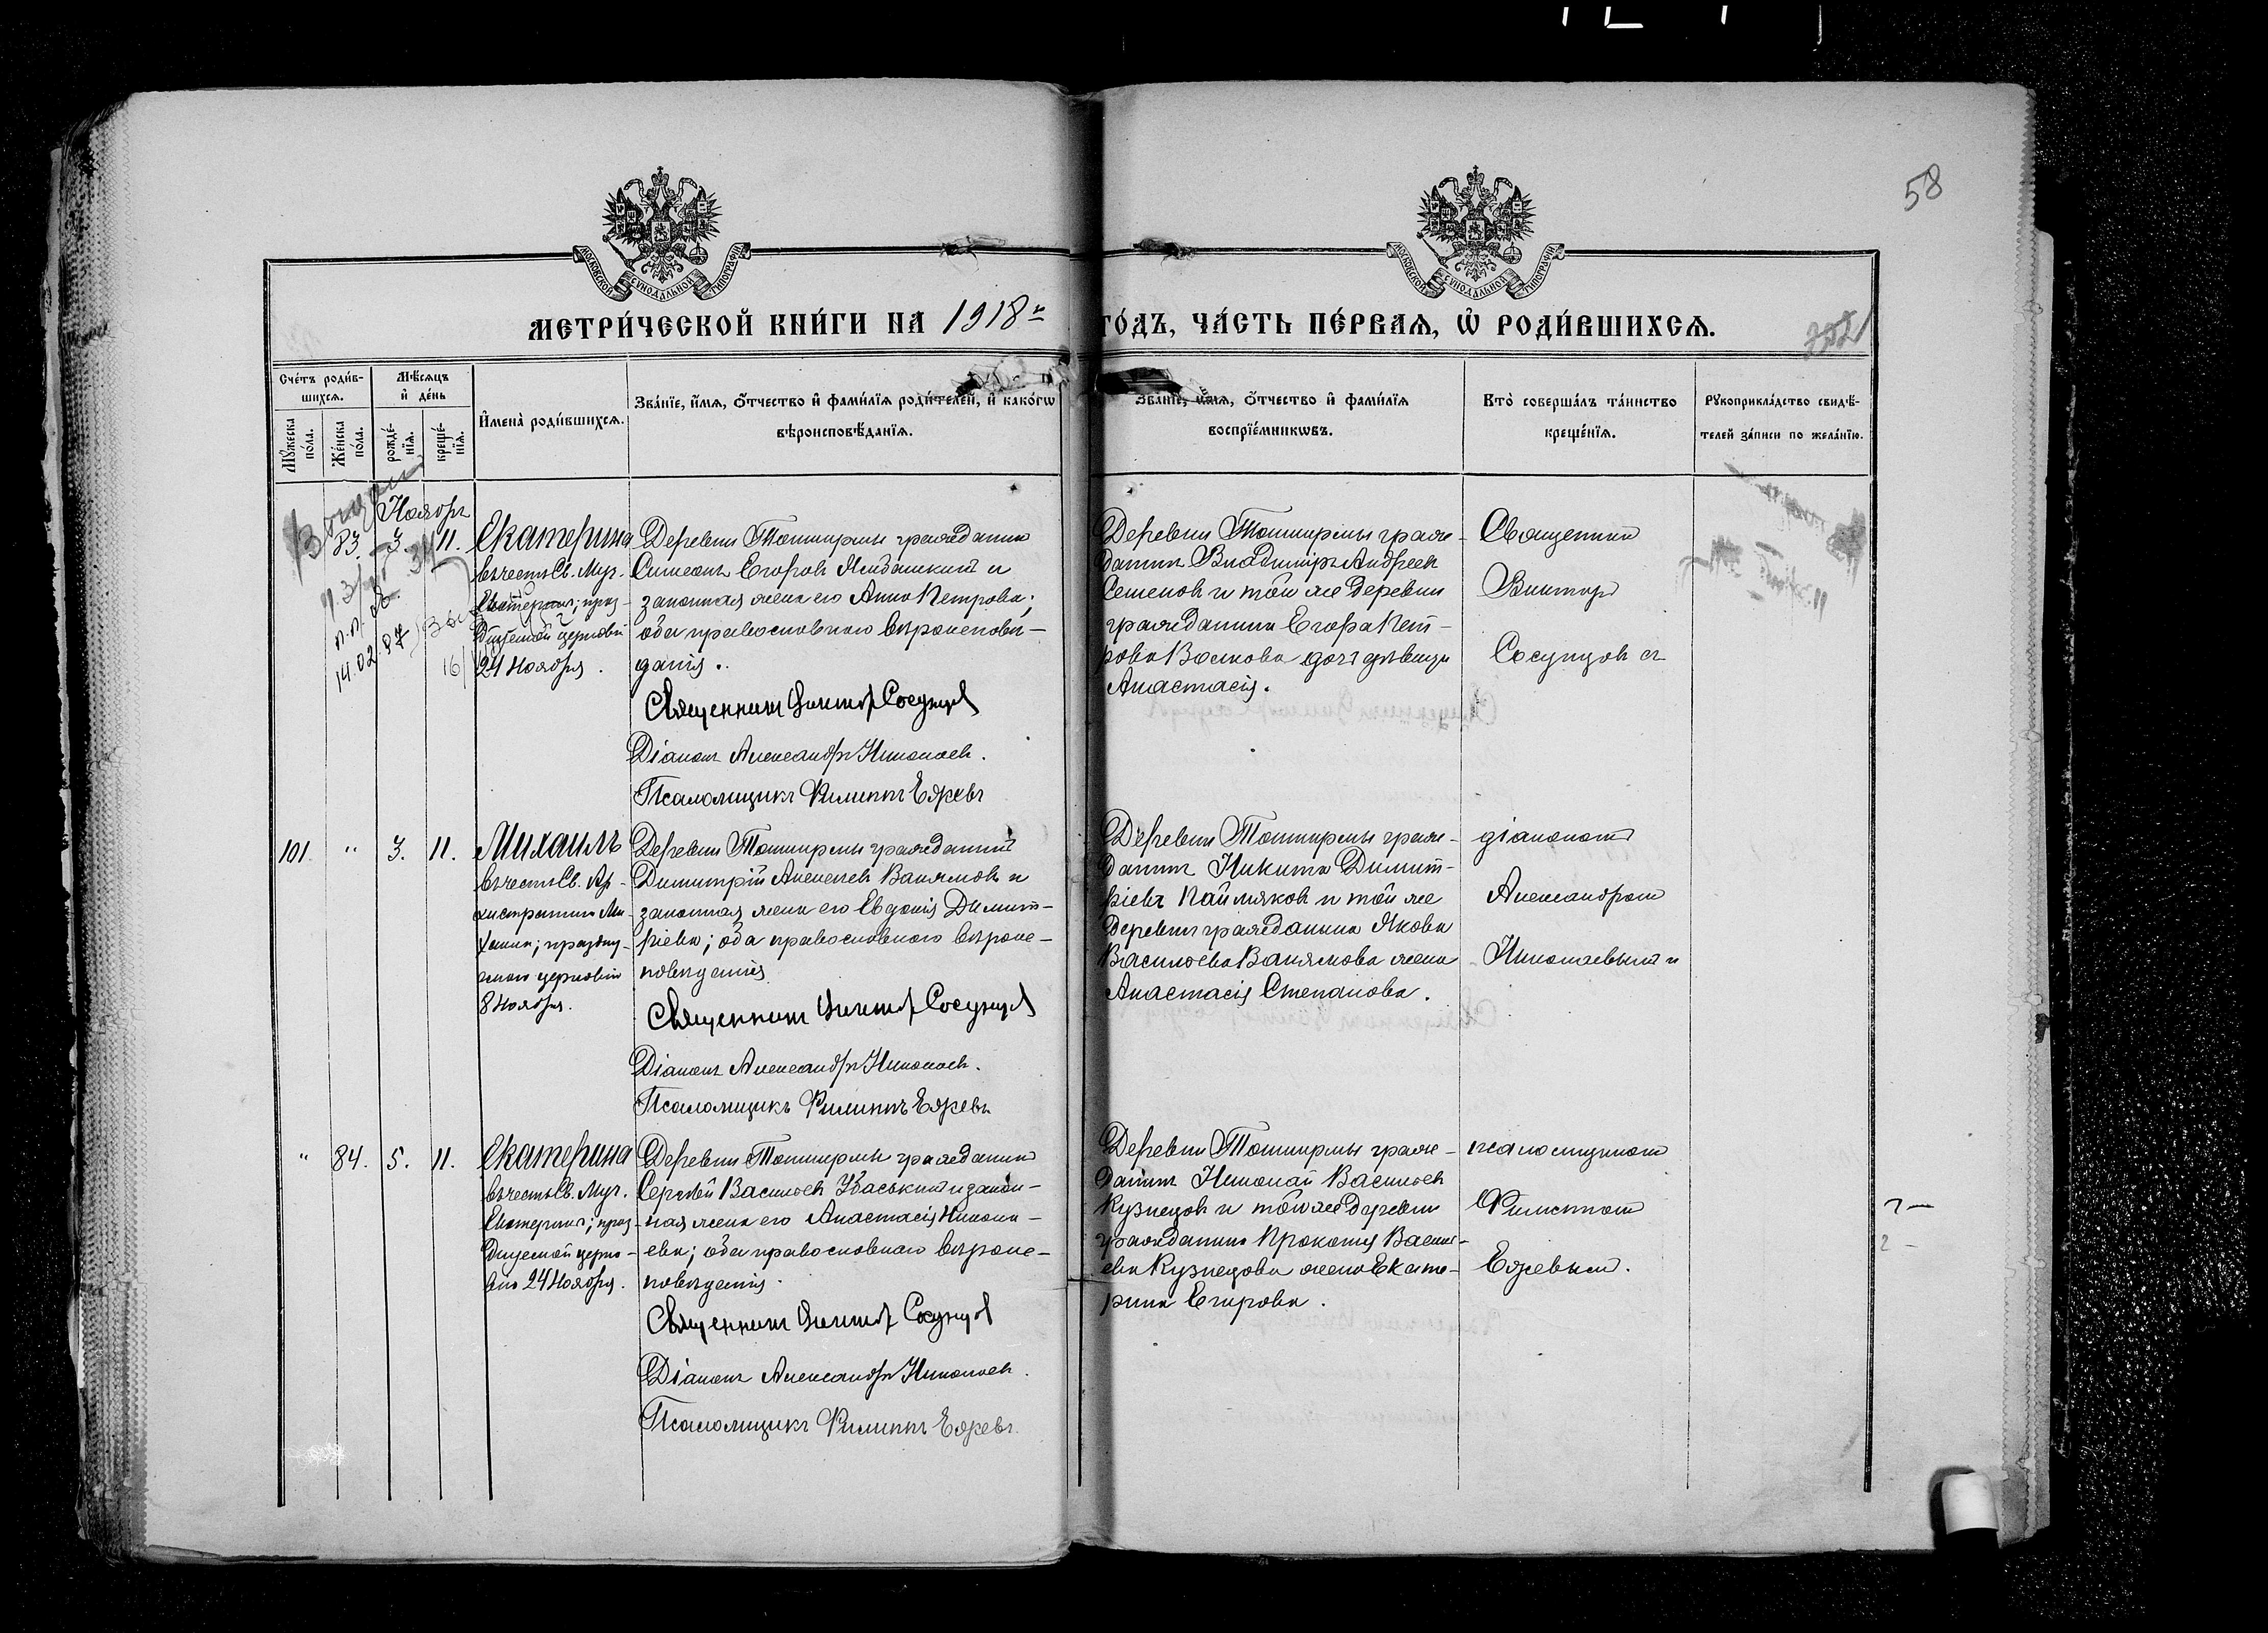 58
МОСКОВСКОЙ СѴНОДАЛЬНОЙ ТИПОГРАФІИ
МОСКОВСКОЙ СѴНОДАЛЬНОЙ ТИПОГРАФІИ
МЕТРИ́ЧЕСКОЙ КНИ́ГИ НА 1918 г.
ГО́ДЪ, ЧА́СТЬ ПЕ́РВАЯ, Ѡ҆ РОДИ́ВШИХСЯ.
Сче́тъ роди́в-
шихся.
Мꙋ́жеска по́ла.
Же́нска по́ла.
Мѣ́сяцъ и҆ де́нь
рожде́-
нїя.
креще́-
нїя.
И҆мена̀ роди́вшихся.
Зва́нїе, и҆́мя, ѻ҆́тчество и҆ фами́лїя роди́телей, и҆ како́гѡ
вѣроисповѣ́данїя.
Зва́нїе, и҆́мя, ѻ҆́тчество и҆ фами́лїя
воспрїе́мникѡвъ.
Кто̀ соверша́лъ та́инство
креще́нїя.
Рꙋкоприкла́дство свидѣ́-
телей за́писи по жела́нїю.
Ноябрь
83. 3. 11.
14.02.87
Екатерина
въ честь Св. Муч.
Екатерины; праз-
днуемой церковію
24 ноября.
Деревни Тоширмы гражданин
Симеонъ Егоров и
законная жена его Анна Петрова;
оба православнаго вѣроисповѣ-
данія.
Священникъ Виктор Сосунцов
Діаконъ Александръ Николаев.
Псаломщикъ Филиппъ Еяревъ
Деревни Тоширмы граж-
данин Владимір Андреев
Семенов и той же деревни
гражданина Егора Пет-
рова Волкова дочь дѣвица
Анастасія.
Священник
Виктор
Сосунцов с
101. " 3. 11.
Михаилъ
въ честь Св. Ар-
хистратига Ми-
хаила; праздну-
емаго церковію
8 ноября.
Деревни Тоширмы гражданин
Димитрій Алексеев Ванямов и
законная жена его Евдокія Димит-
ріева; оба православнаго вѣроис-
повѣданія
Священникъ Виктор Сосунцов
Діаконъ Александръ Николаев.
Псаломщикъ Филиппъ Еяревъ
Деревни Тоширмы граж-
данин Никита Димит-
ріевъ Паймяков и той же
деревни гражданина Якова
Васильева Ванямова жена
Анастасія Степанова.
діаконом
Александром
Николаевым и
" 84. 5. 11.
Екатерина
въ честь Св. Муч.
Екатерины; праз-
днуемой церко-
вію 24 ноября.
Деревни Тоширмы гражданин
Сергѣй Васильев Убаськин и закон-
ная жена его Анастасія Никола-
ева; оба православнаго вѣроис-
повѣданія.
Священникъ Виктор Сосунцов
Діаконъ Александръ Николаев.
Псаломщикъ Филиппъ Еяревъ.
Деревни Тоширмы граж-
данин Николай Васильев
Кузнецов и той же деревни
гражданина Прокопія Василь-
ева Кузнецова жена Екате-
рина Егорова.
псаломщиком
Филиппом
Еяревым.